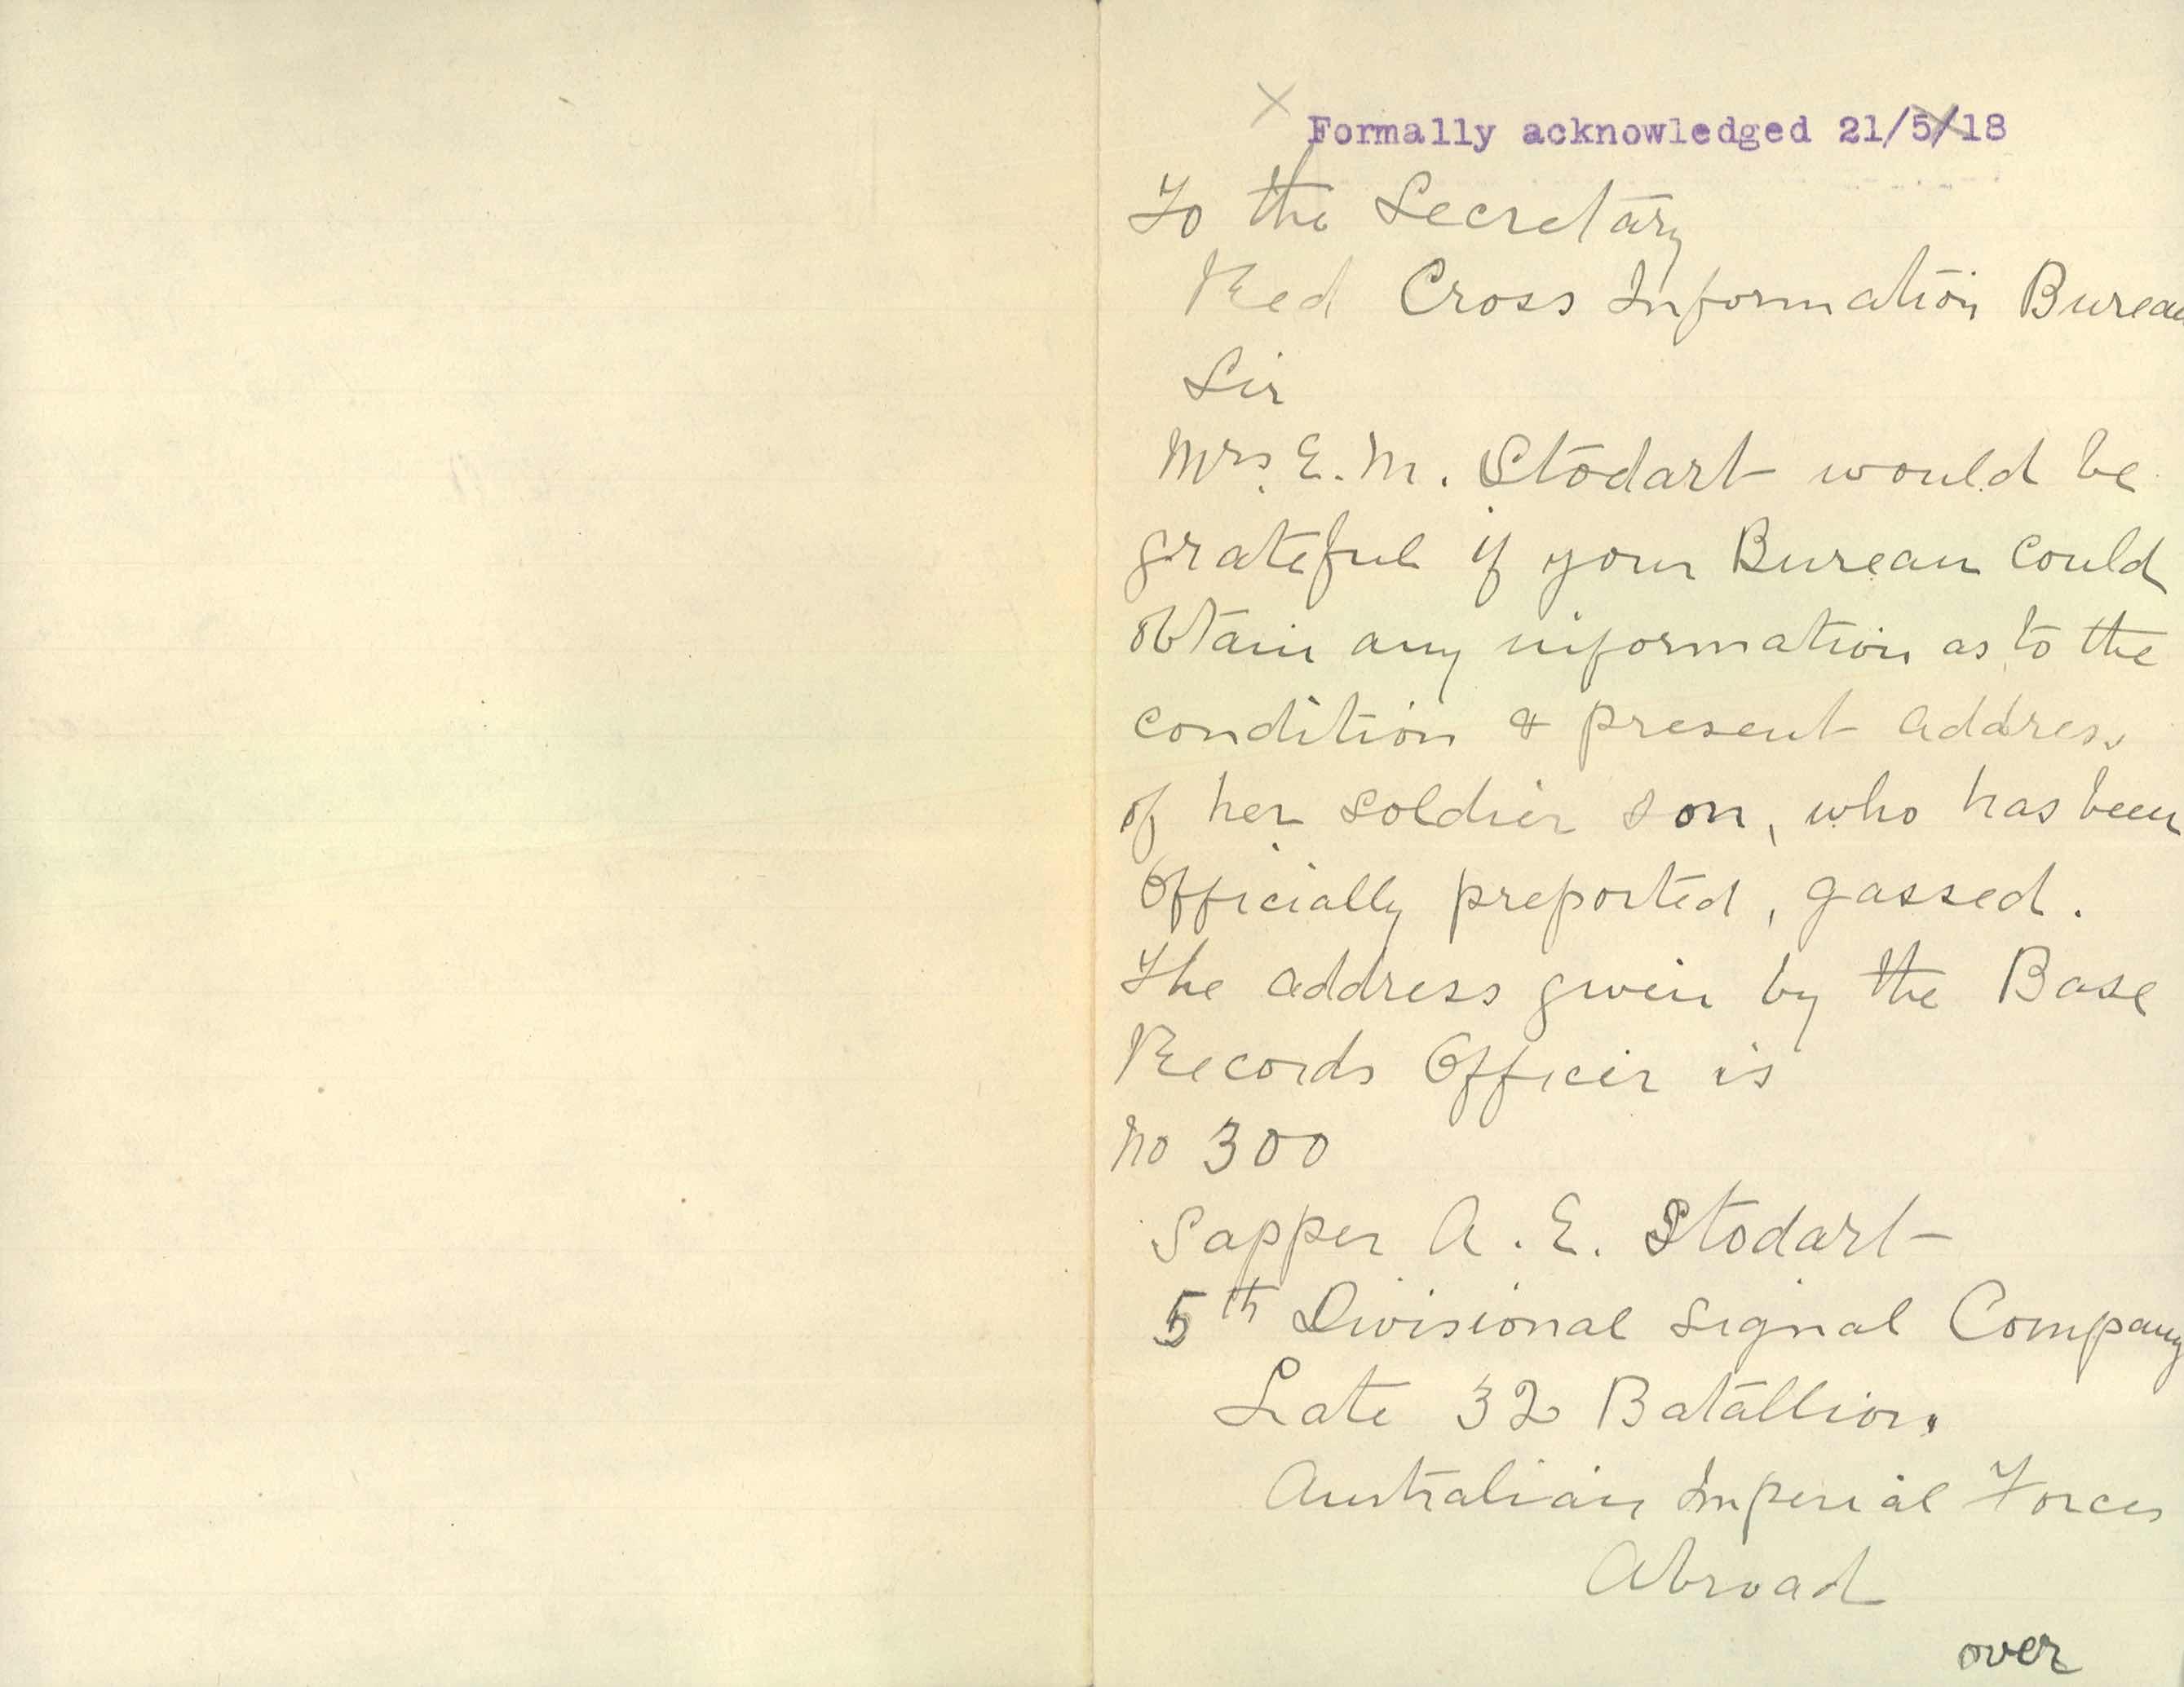 Formally acknowledged 21/5/18
To the Secretary
Red Cross Information Bureau
Sir
Mrs. E. M. Stodart would be
grateful if your Bureau could
obtain any information as to the
condition & present address
of her soldier son, who has been
Officially preported, gassed.
The address given by the Base
Records Officer is
No 300
Sapper A. E. Stodart
5th Divisional Signal Company
Late 32 Batallion.
Australian Imperial Forces
Abroad
over